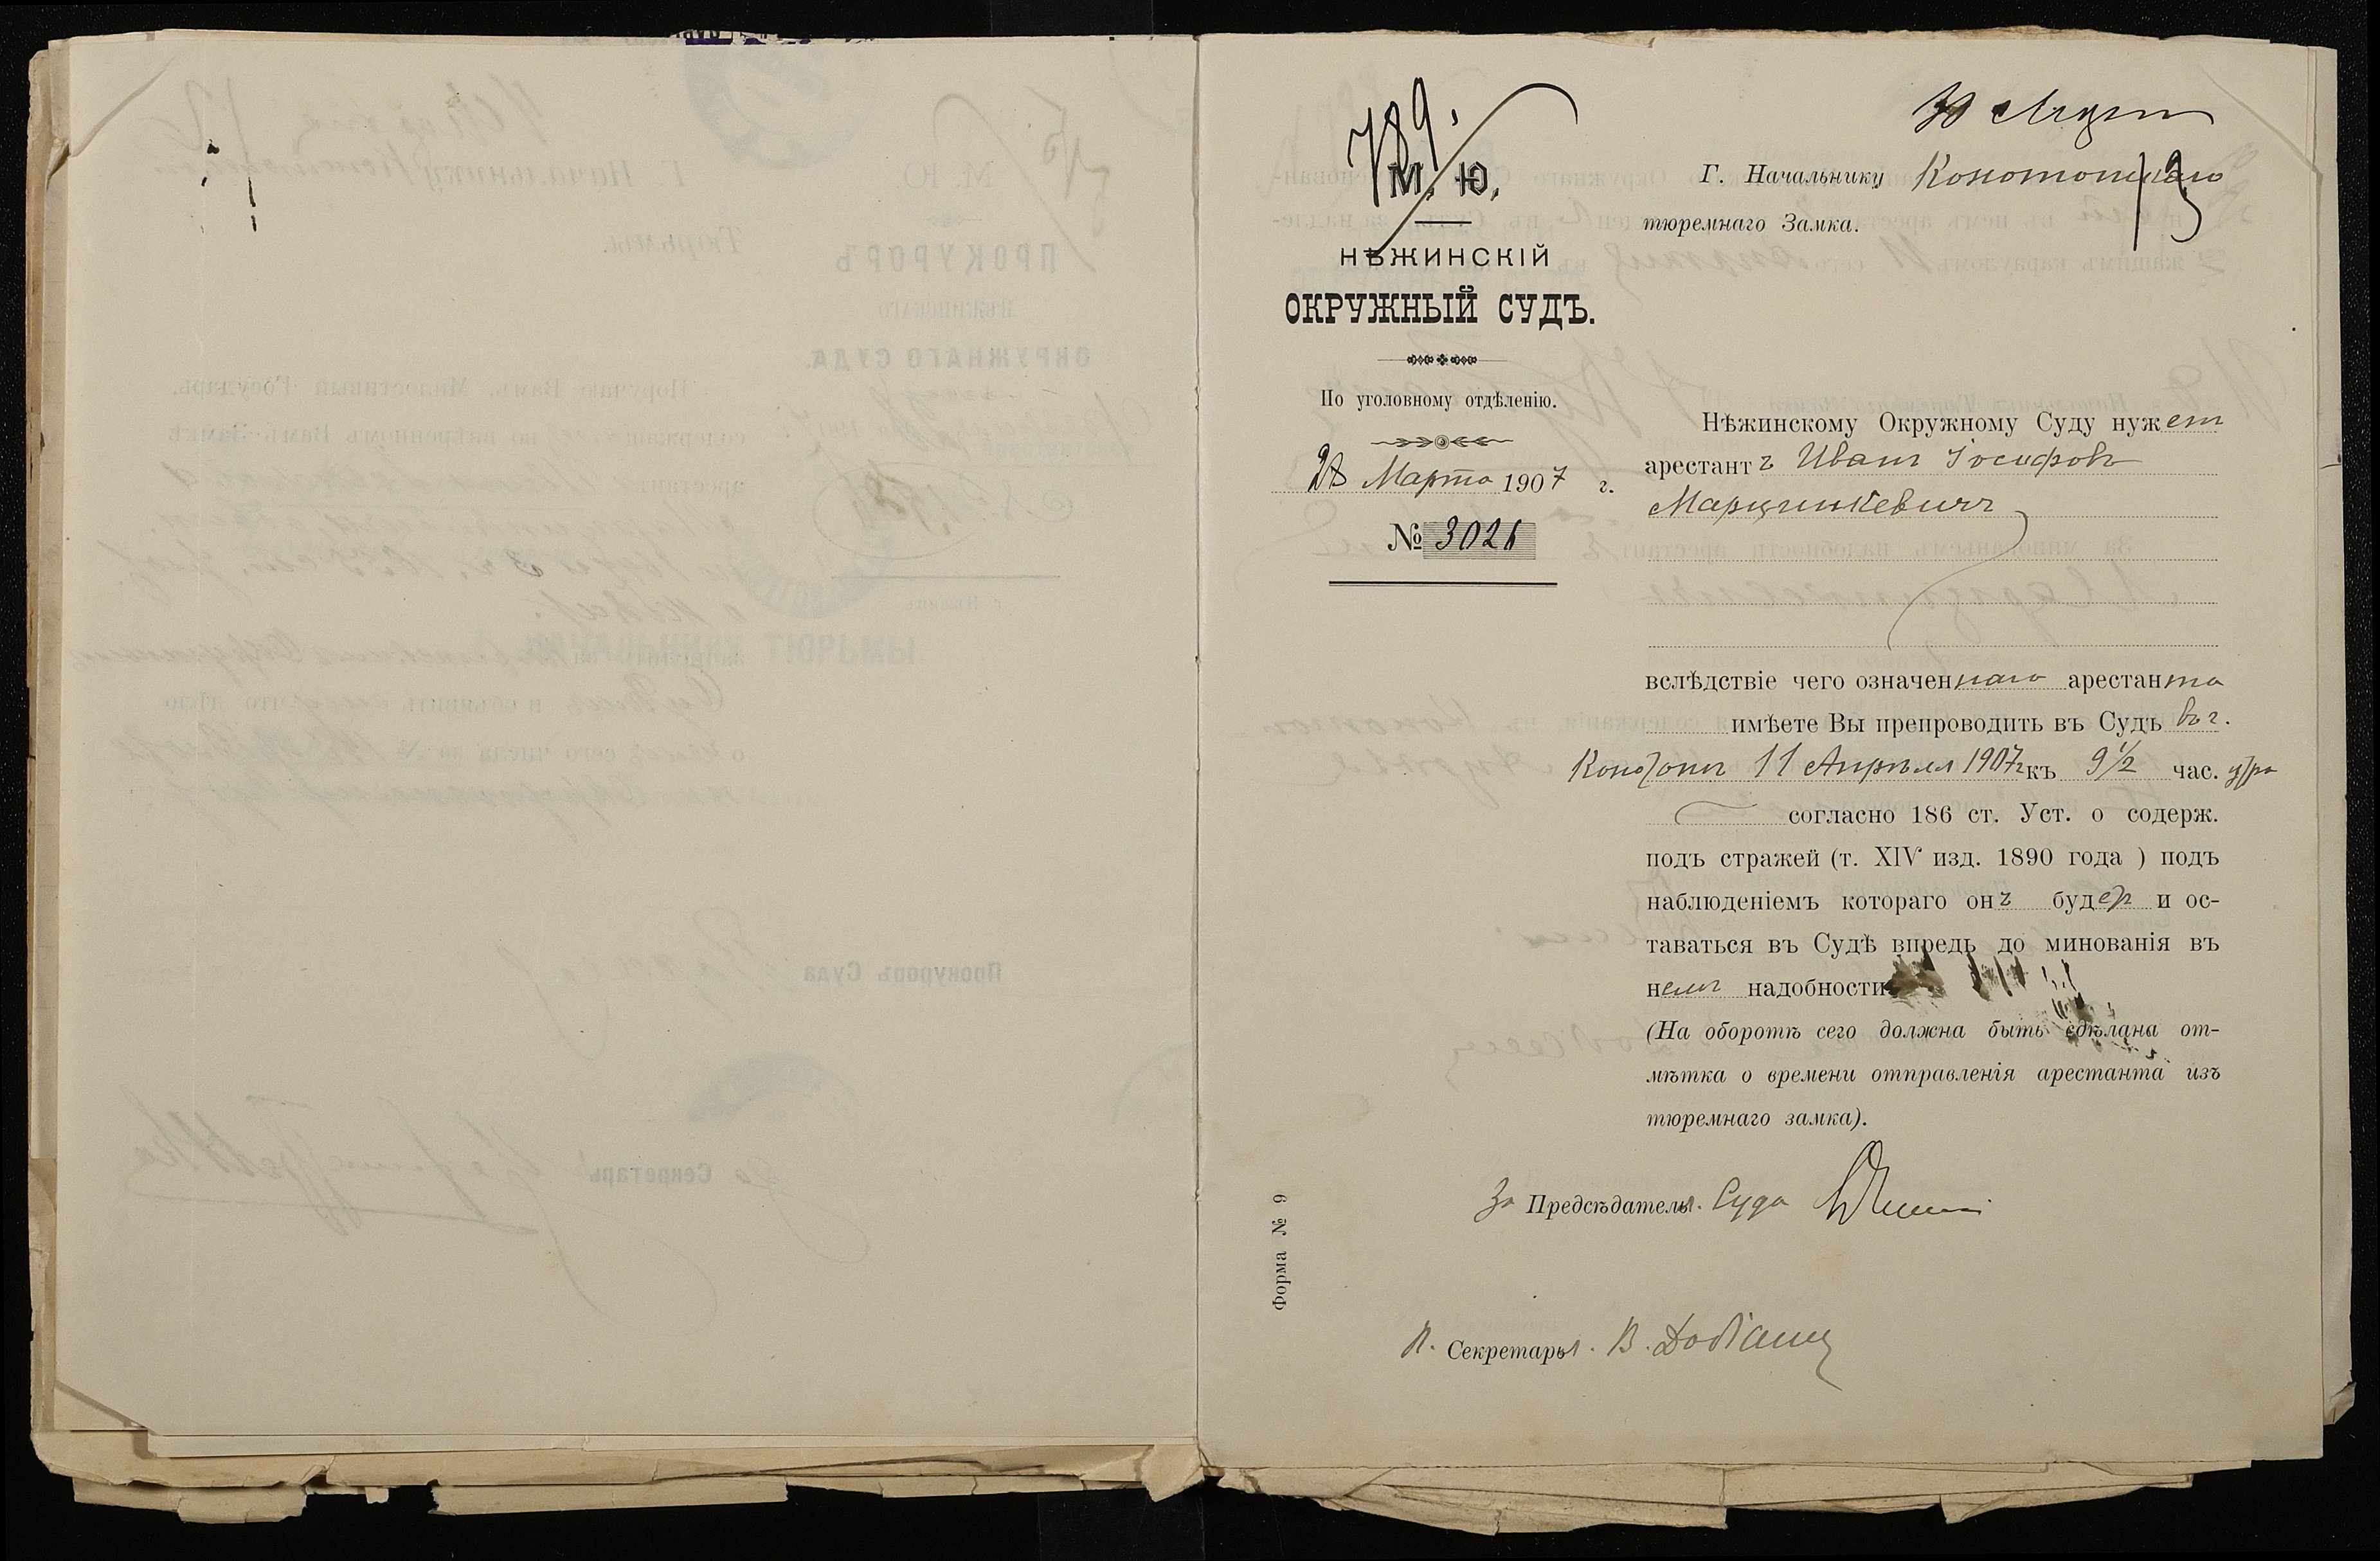 789.
30 Марта
13
М. Ю.
НѢЖИНСКІЙ
ОКРУЖНЫЙ СУДЪ.
По уголовному отдѣленію.
28 Марта 1907 г.
№ 3026
Г. Начальнику Конотопскаго
тюремнаго Замка.
Нѣжинскому Окружному Суду нуженъ
арестантъ Иванъ Іосифовъ
Марцинкевичъ
вслѣдствіе чего означеннаго арестанта
имѣете Вы препроводить въ Судъ въ г.
Конотопъ 11 Апрѣля 1907 г къ 9 1/2 час. утра
согласно 186 ст. Уст. о содерж.
подъ стражей (т. XIV изд. 1890 года ) подъ
наблюденіемъ котораго онъ будетъ и ос-
таваться въ Судѣ впредь до минованія въ
немъ надобности
(На оборотѣ сего должна быть сдѣлана от-
мѣтка о времени отправленія арестанта изъ
тюремнаго замка).
За Предсѣдателя. Суда
П. Секретаря. В. Добіашъ
Форма № 9